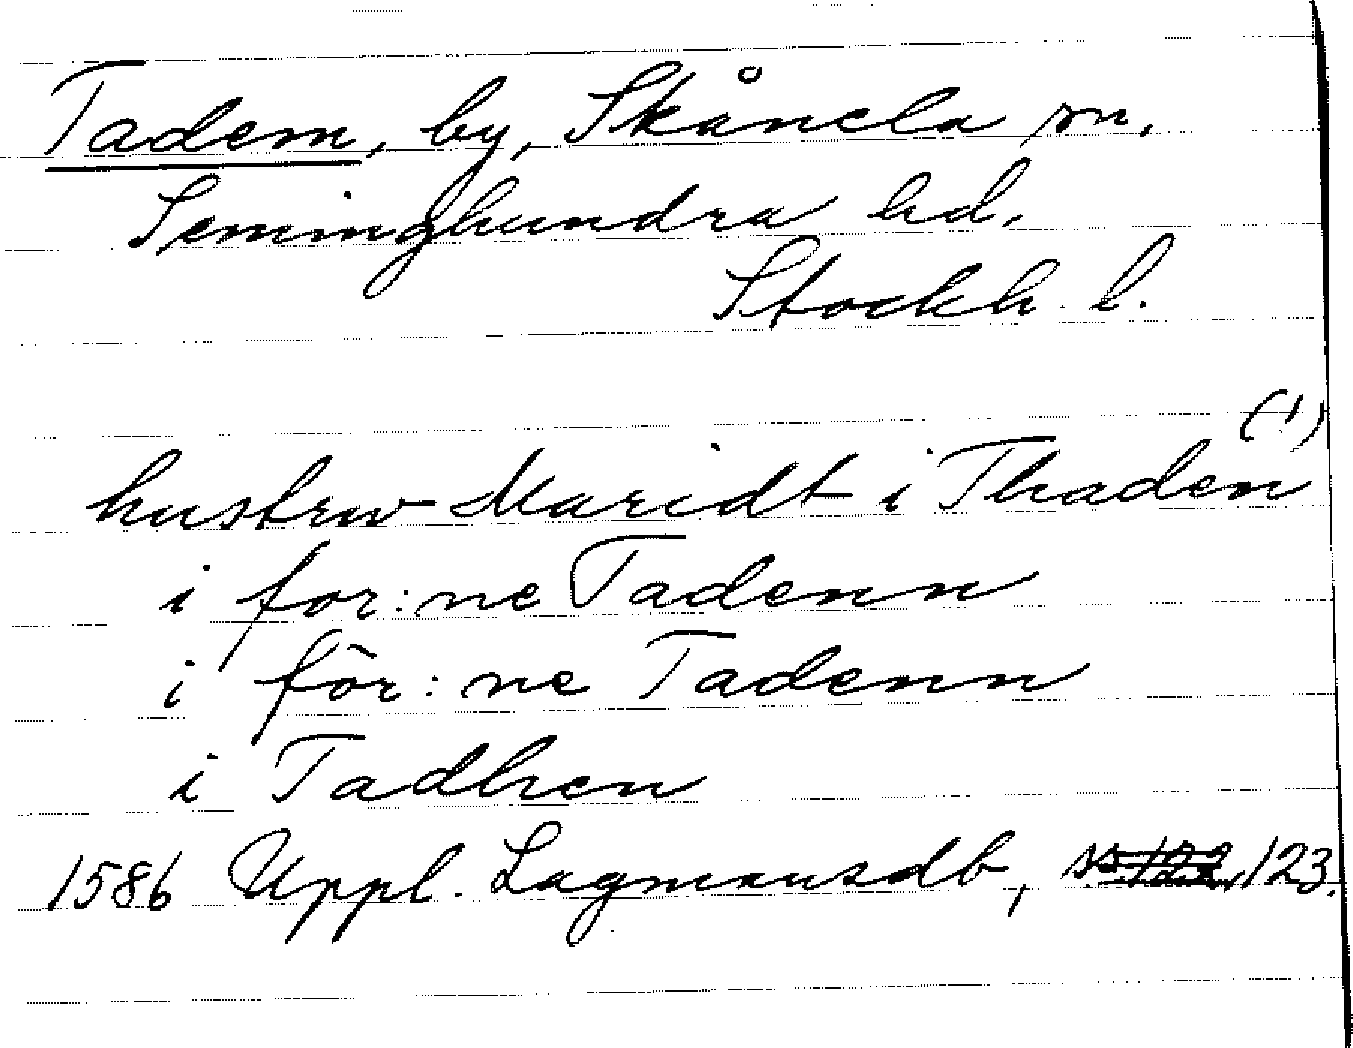 Tadem, by, Skånela sn.
Seminghundra hd.
Stockh. l.
(1)
hustrw Maridt i Thaden
i for:ne Tadenn
i för:ne Tadenn
i Tadhen
1586 Uppl. Lagmansdb, s. 122, 123.